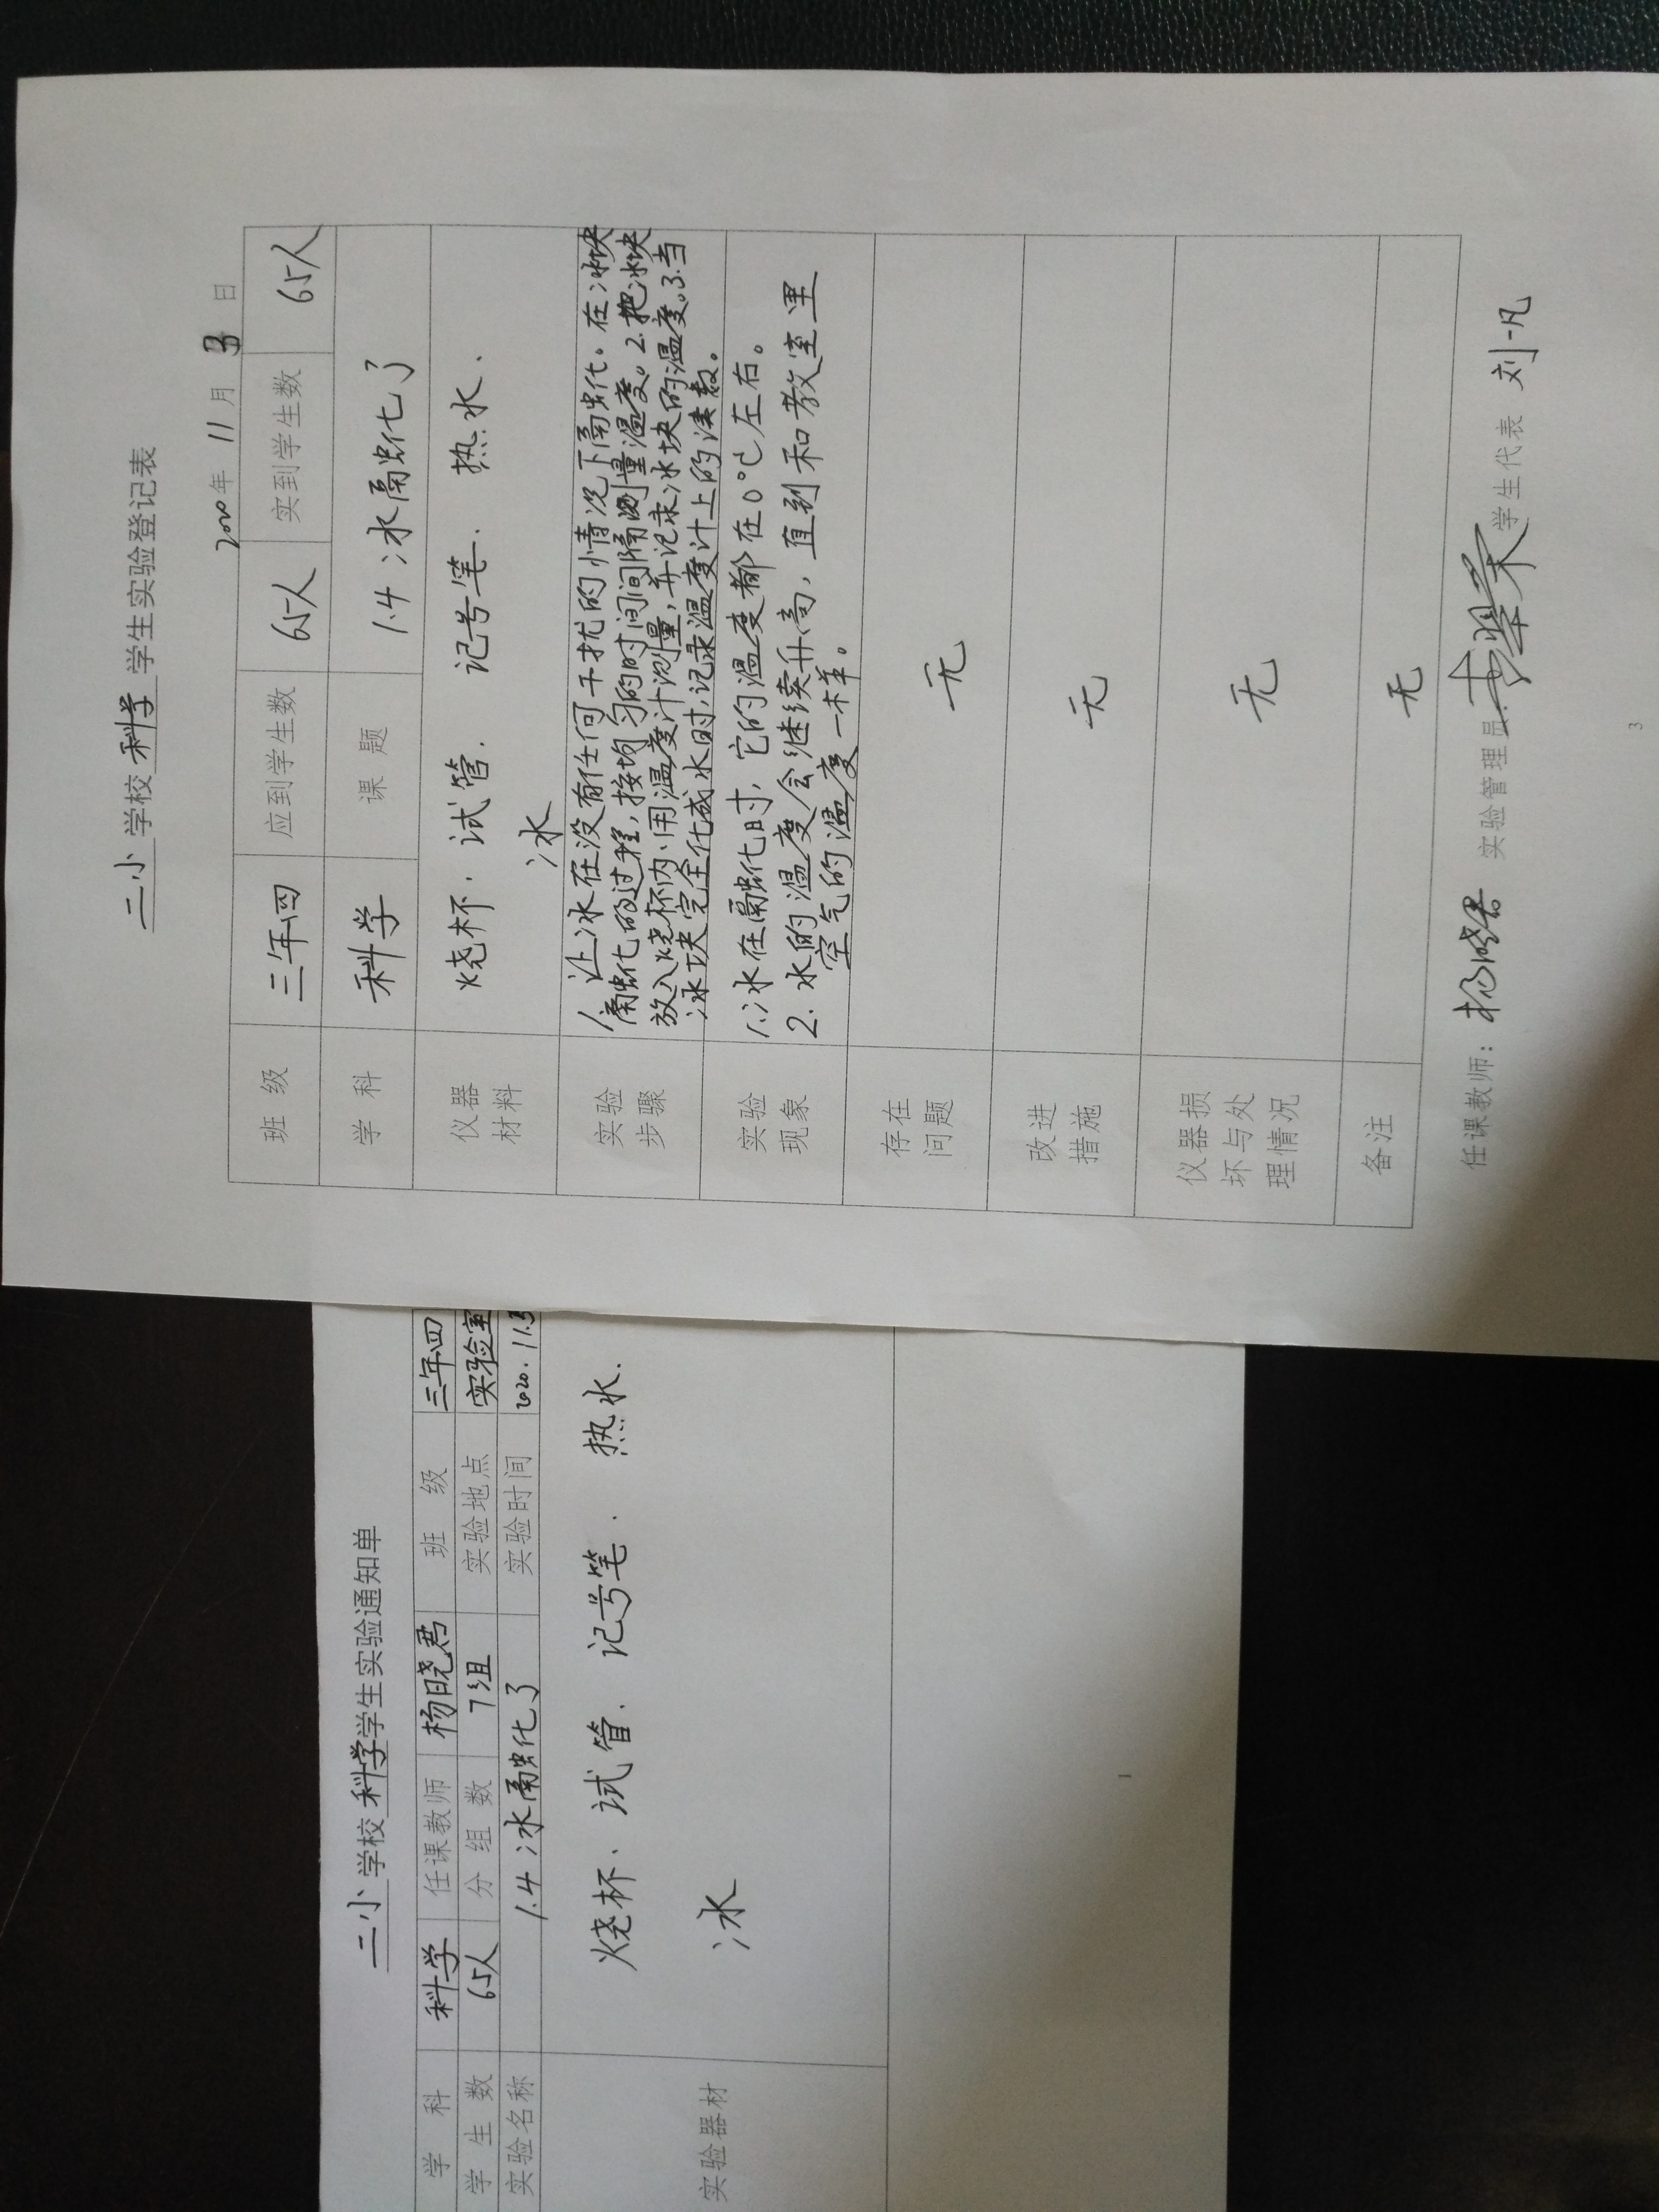 二小 学校 科学 学生实验登记表
2020年 11 月 3 日
班 级 三年四 应到学生数 65人 实到学生数 65人
学 科 科学 课 题 1.4 冰融化了
仪器材料 烧杯、试管、记号笔、热水、
冰
实验步骤 1、让冰在没有任何干扰的情况下融化。在冰块
融化的过程,按均匀的时间间隔测量温度。2.把冰块
放入烧杯内、用温度计测量,并记录冰块的温度。3.当
冰块完全化成水时,记录温度计上的读数。
实验现象 1.冰在融化时,它的温度都在0℃左右。
2.水的温度会继续升高,直到和教室里
空气的温度一样。
存在问题 无
改进措施 无
仪器损坏与处理情况 无
备注 无
任课教师: 杨晓君 实验管理员: 学生代表 刘一凡
3
二小 学校 科学 学生实验通知单
学 科 科学 任课教师 杨晓君 班 级 三年四
学 生 数 65人 分 组 数 7组 实验地点 实验室
实验名称 1.4 冰融化了 实验时间 2020.11.3
实验器材 烧杯、试管、记号笔、热水、
冰
1